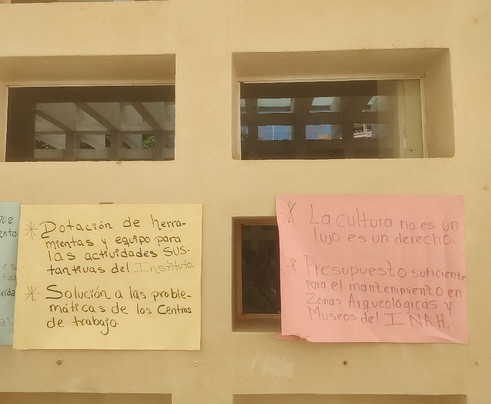 * Dotación de herra-
mientas y equipo para
las actividades sus-
tantivas del Instituto
* Solución a las proble-
máticas de los Centros
de trabajo.
* La cultura no es un
lujo es un derecho.
* Presupuesto suficiente
para el mantenimiento en
Zonas Arqueológicas y
Museos del INAH.